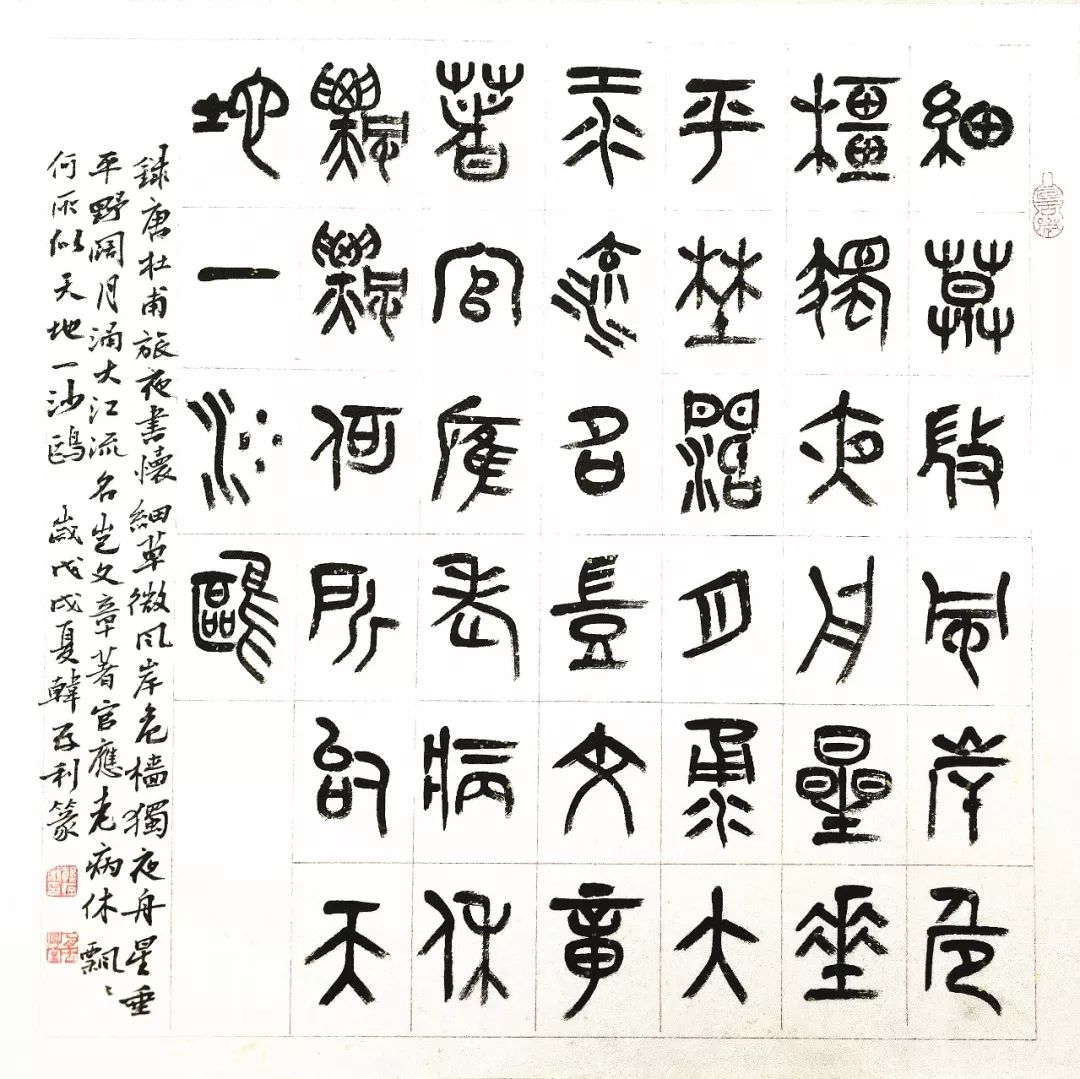 細草微風岸危
檣獨夜舟星垂
平野闊月涌大
江流名豈文章
著官應老病休
飄飄何所似天
地一沙鷗
録唐杜甫旅夜書懷細草微风岸危檣獨夜舟星垂
平野闊月涌大江流名豈文章著官應老病休飄〻
何所似天地一沙鷗 歲戊戌夏韓存利篆